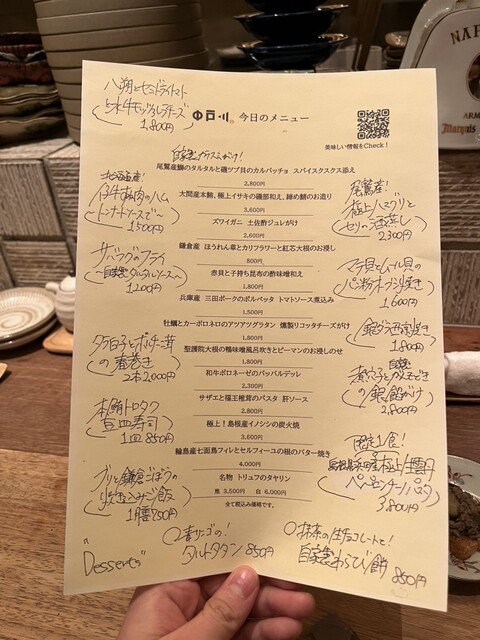 八朔とセミドライトマト
と水牛モッツァレラチーズ
1,800円
中戸川 今日のメニュー
美味しい情報をCheck!
自家製カラスミがけ!
尾鷲産鰤のタルタルと磯ツブ貝のカルパッチョ スパイスクスクス添え
2,800円
大間産本鮪、極上イサキの磯部和え、締め鯖のお造り
3,600円
ズワイガニ 土佐酢ジュレがけ
2,600円
鎌倉産 ほうれん草とカリフラワーと紅芯大根のお浸し
800円
赤貝と子持ち昆布の酢味噌和え
1,800円
兵庫産 三田ポークのポルペッタ トマトソース煮込み
1,500円
牡蠣とカーボロネロのアツアツグラタン 燻製リコッタチーズがけ
1,800円
聖護院大根の鴨味噌風呂吹きとピーマンのお浸しのせ
1,800円
和牛ボロネーゼのパッパルデッレ
2,300円
サザエと福王椎茸のパスタ 肝ソース
2,800円
極上!島根産イノシシの炭火焼
3,600円
輪島産七面鳥フィレとセルフィーユの根のバター焼き
4,000円
名物 トリュフのタヤリン
黒 3,500円 白 6,000円
全て税込み価格です。
北海道産!
仔牛もも肉のハム
トンナートソースで
1,500円
サバフグのフライ
〜自家製タルタルソースへ
1,200円
タラ白子とポルチーニ茸
の春巻き
2本2,000円
本鮪トロタク
豆皿寿司
1皿850円
ブリと鎌倉ごぼうの
炊き込みご飯
1膳750円
尾鷲産!
極上ハマグリと
セリの酒蒸し
2,300円
マテ貝とムール貝の
パン粉オーブン焼き
1,600円
銀ダラ西京焼き
1,800円
煮穴子と自家製がんもどき
の銀餡がけ
2,800円
限定1食!
島根県浜田産極上雲丹
ペペロンチーノパスタ
3,800円
"Desserts"
○青リンゴの!
タルトタタン 850円
○抹茶の生チョコレートと!
自家製わらび餅 850円